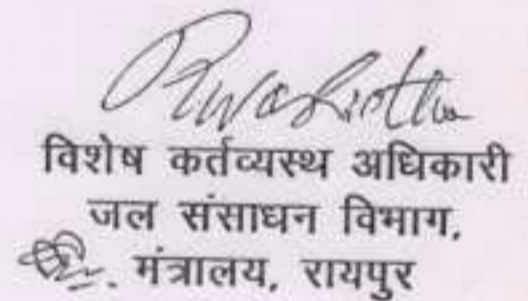 विशेष कर्तव्यस्थ अधिकारी
जल संसाधन विभाग,
मंत्रालय, रायपुर